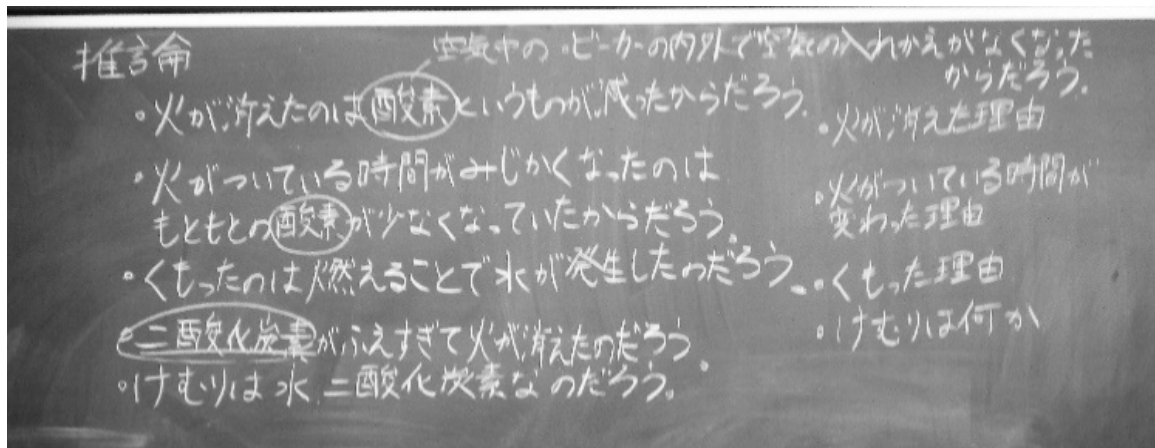 推論
空気中の・ビーカーの内外で空気の入れかえがなくなった
からだろう。
・火が消えたのは酸素というものが減ったからだろう。
・火がついている時間がみじかくなったのは
もともとの酸素が少なくなっていたからだろう。
・くもったのは燃えることで水が発生したのだろう。
・二酸化炭素がふえすぎて火が消えたのだろう。
・けむりは水 二酸化炭素なのだろう。
・火が消えた理由
・火がついている時間が
変わった理由
・くもった理由
・けむりは何か